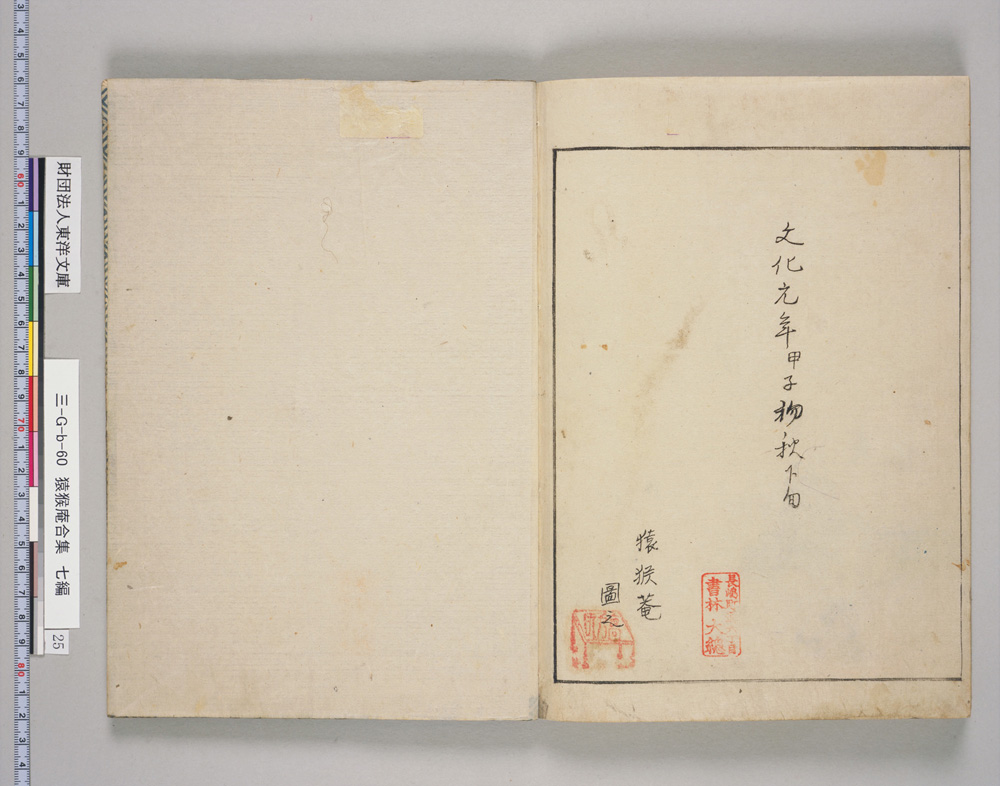 財団法人東洋文庫
三-G-b-60 猿猴庵合集 七編
25
文化元年甲子初秋下旬
猿猴菴
圖之
長嶋町
書林 大總